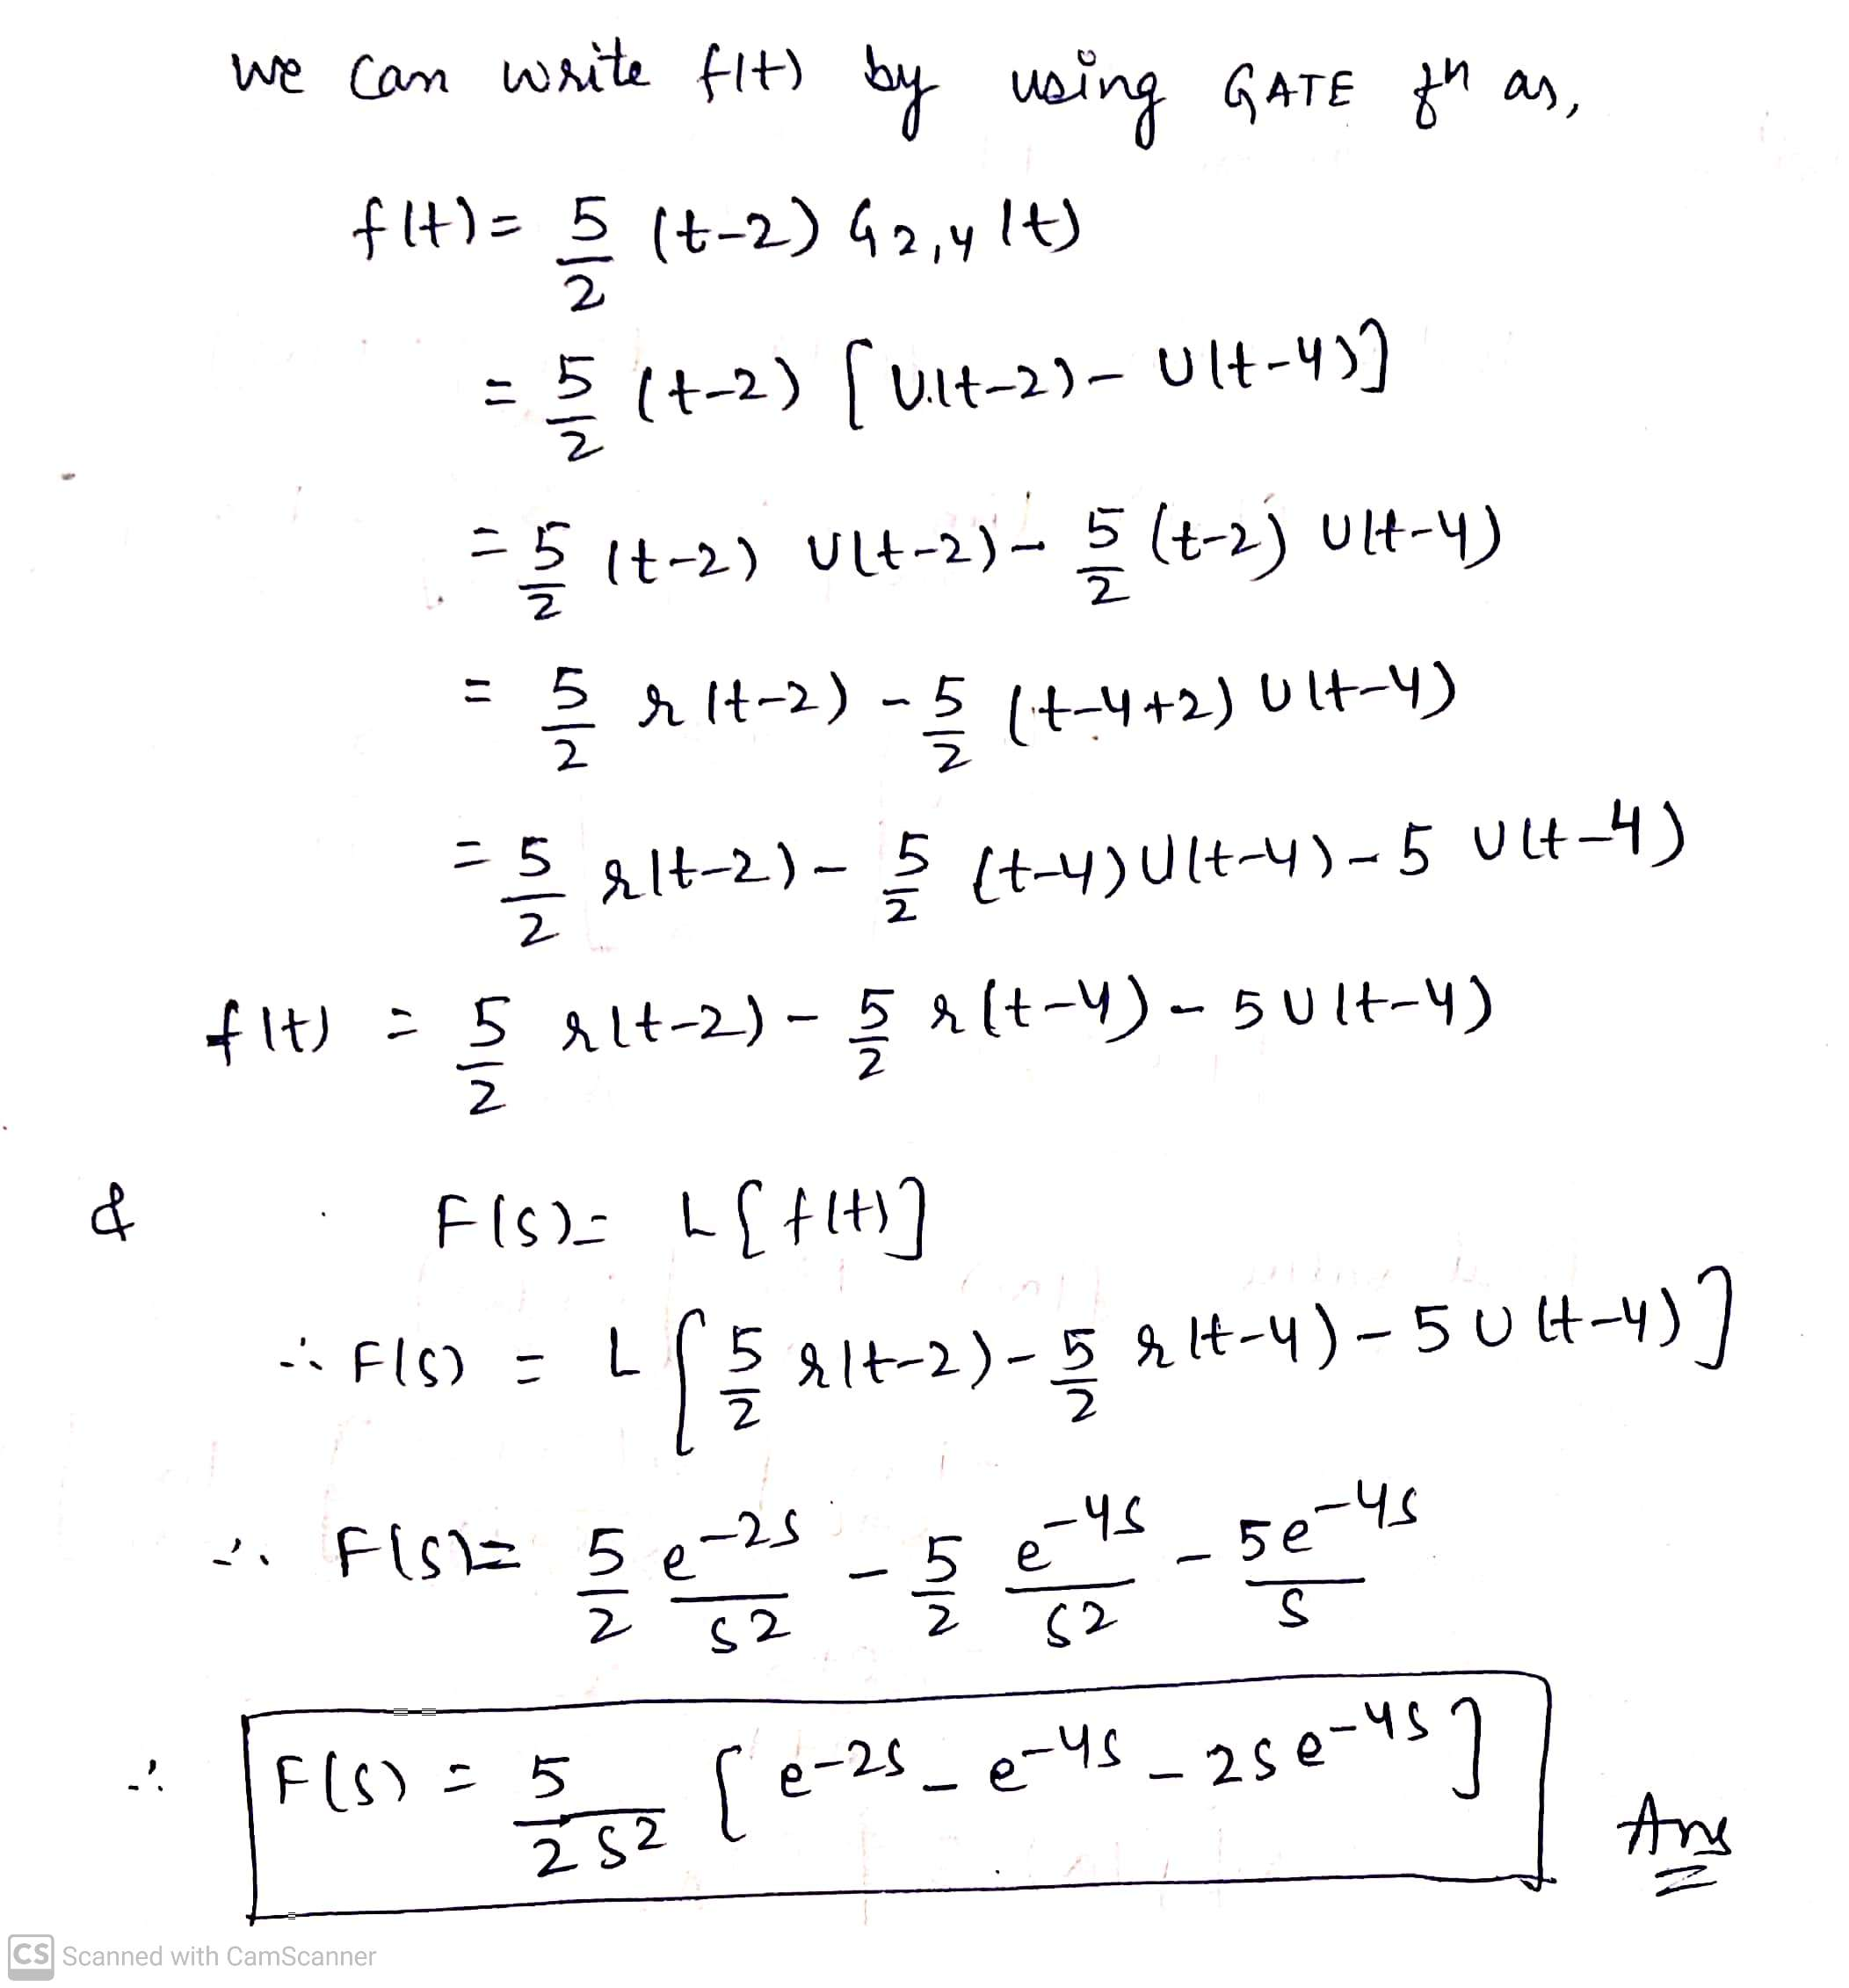 we can write f(t) by using GATE fn as,
f(t) = 5/2 (t-2) G2,4(t)
= 5/2 (t-2) [U(t-2) - U(t-4)]
= 5/2 (t-2) U(t-2) - 5/2 (t-2) U(t-4)
= 5/2 r(t-2) - 5/2 (t-4+2) U(t-4)
= 5/2 r(t-2) - 5/2 (t-4) U(t-4) - 5 U(t-4)
f(t) = 5/2 r(t-2) - 5/2 r(t-4) - 5 U(t-4)
& F(s) = L[f(t)]
∴ F(s) = L[5/2 r(t-2) - 5/2 r(t-4) - 5 U(t-4)]
∴ F(s) = 5/2 e^-2s/s^2 - 5/2 e^-4s/s^2 - 5e^-4s/s
∴ F(s) = 5/2s^2 [e^-2s - e^-4s - 2s e^-4s]
Ans
CS Scanned with CamScanner